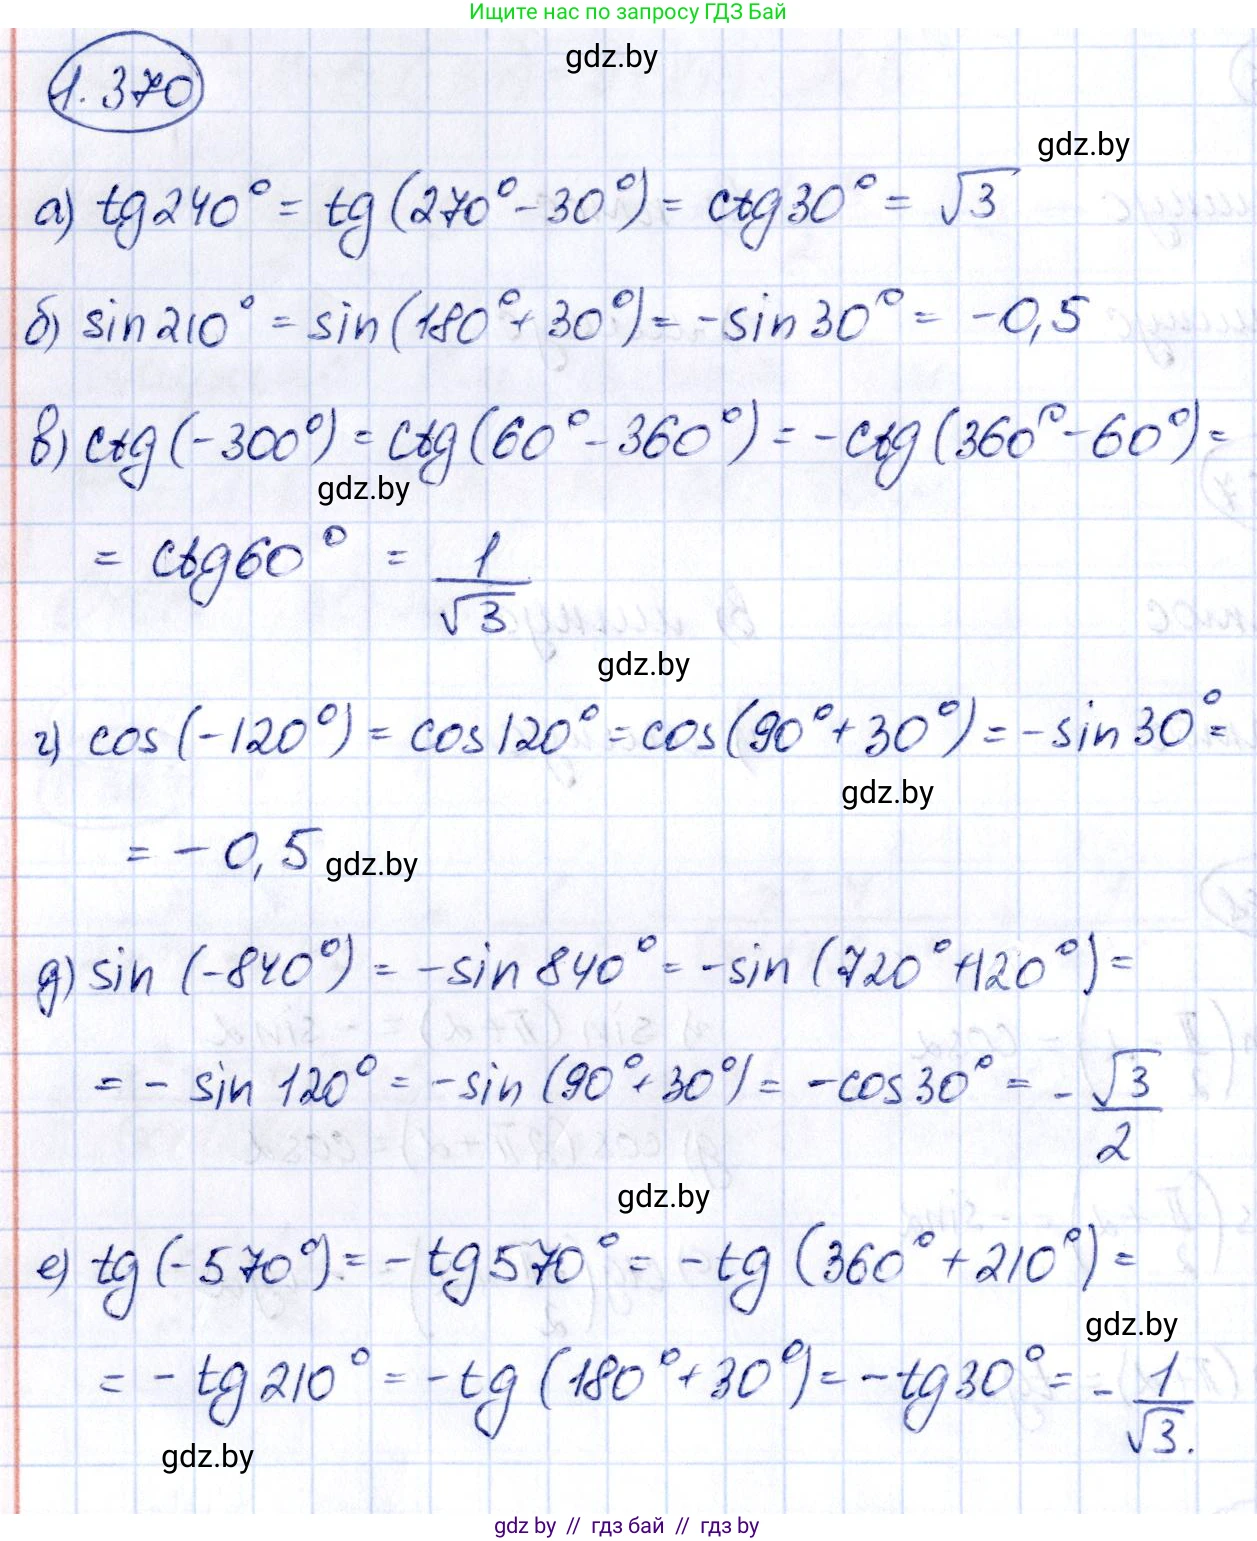 Ищите нас по запросу ГДЗ Бай
gdz.by
1.370
gdz.by
а) tg240° = tg(270°-30°) = ctg30° = √3
б) sin210° = sin(180°+30°) = -sin30° = -0,5
в) ctg(-300°) = ctg(60°-360°) = -ctg(360°-60°) =
gdz.by
= ctg60° = 1/√3
gdz.by
г) cos(-120°) = cos120° = cos(90°+30°) = -sin30° =
gdz.by
= -0,5
gdz.by
д) sin(-840°) = -sin840° = -sin(720°+120°) =
= -sin120° = -sin(90°+30°) = -cos30° = -√3/2
gdz.by
е) tg(-570°) = -tg570° = -tg(360°+210°) =
gdz.by
= -tg210° = -tg(180°+30°) = -tg30° = -1/√3.
gdz.by
gdz by // гдз бай // гдз by